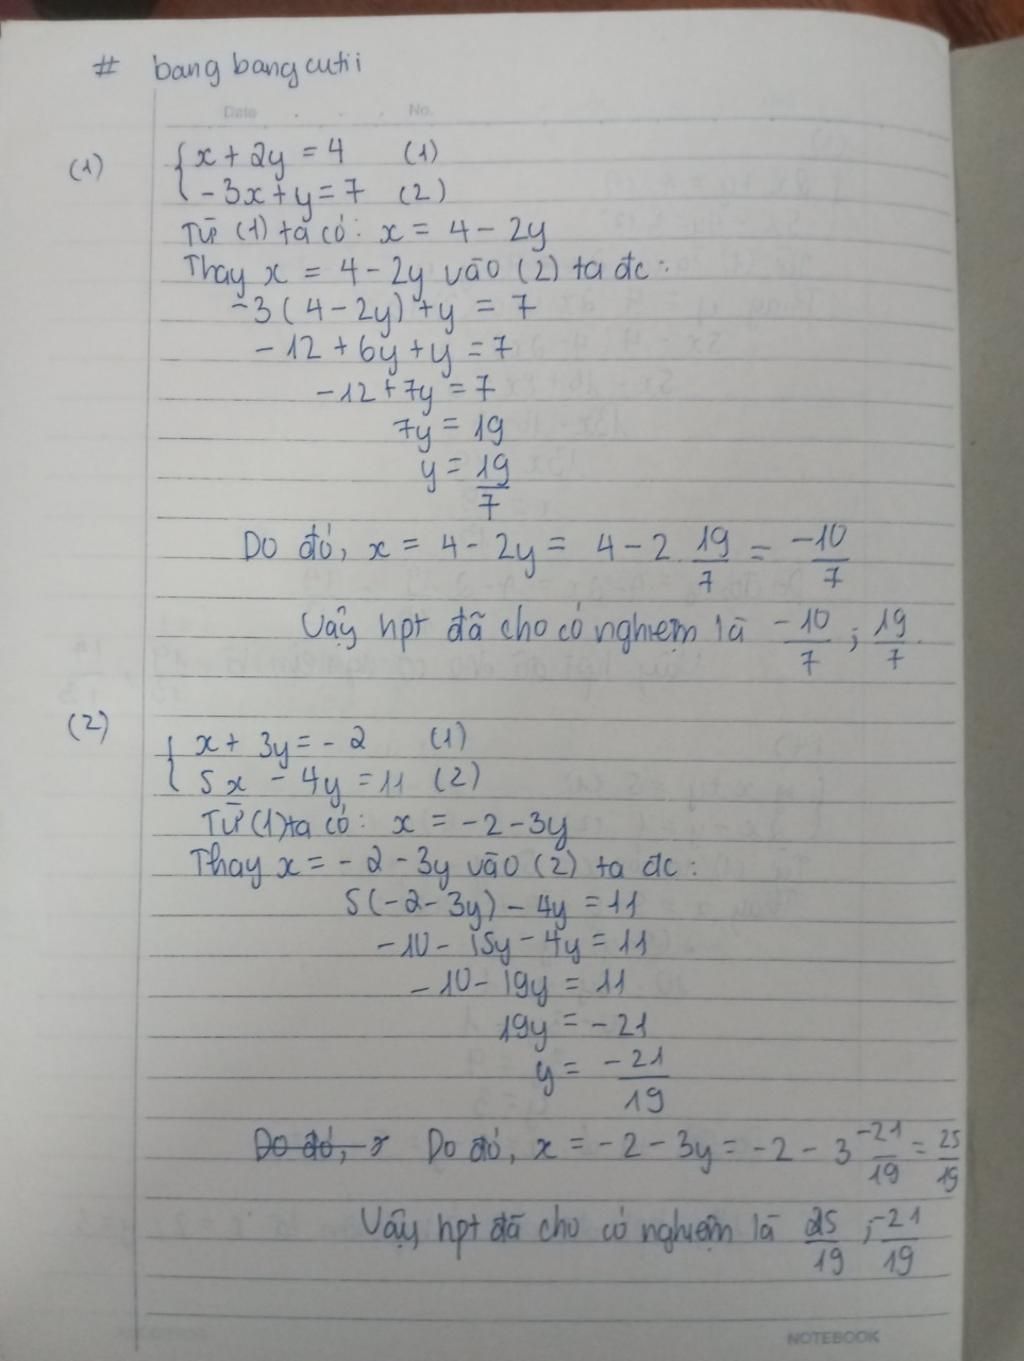 # bang bang cutii
Date No.
(1) { x + 2y = 4 (1)
-3x + y = 7 (2)
Từ (1) ta có: x = 4 - 2y
Thay x = 4 - 2y vào (2) ta đc:
-3(4 - 2y) + y = 7
-12 + 6y + y = 7
-12 + 7y = 7
7y = 19
y = 19/7
Do đó, x = 4 - 2y = 4 - 2. 19/7 = -10/7
Vậy hpt đã cho có nghiệm là -10/7 ; 19/7.
(2) { x + 3y = -2 (1)
5x - 4y = 11 (2)
Từ (1) ta có: x = -2 - 3y
Thay x = -2 - 3y vào (2) ta đc:
5(-2 - 3y) - 4y = 11
-10 - 15y - 4y = 11
-10 - 19y = 11
19y = -21
y = -21/19
Do đó, x Do đó, x = -2 - 3y = -2 - 3 -21/19 = 25/19
Vậy hpt đã cho có nghiệm là 25/19 ; -21/19
NOTEBOOK